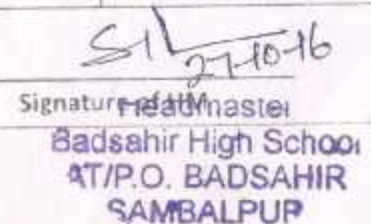 27-10-16
Signature of HM
Headmaster
Badsahir High School
AT/P.O. BADSAHIR
SAMBALPUR